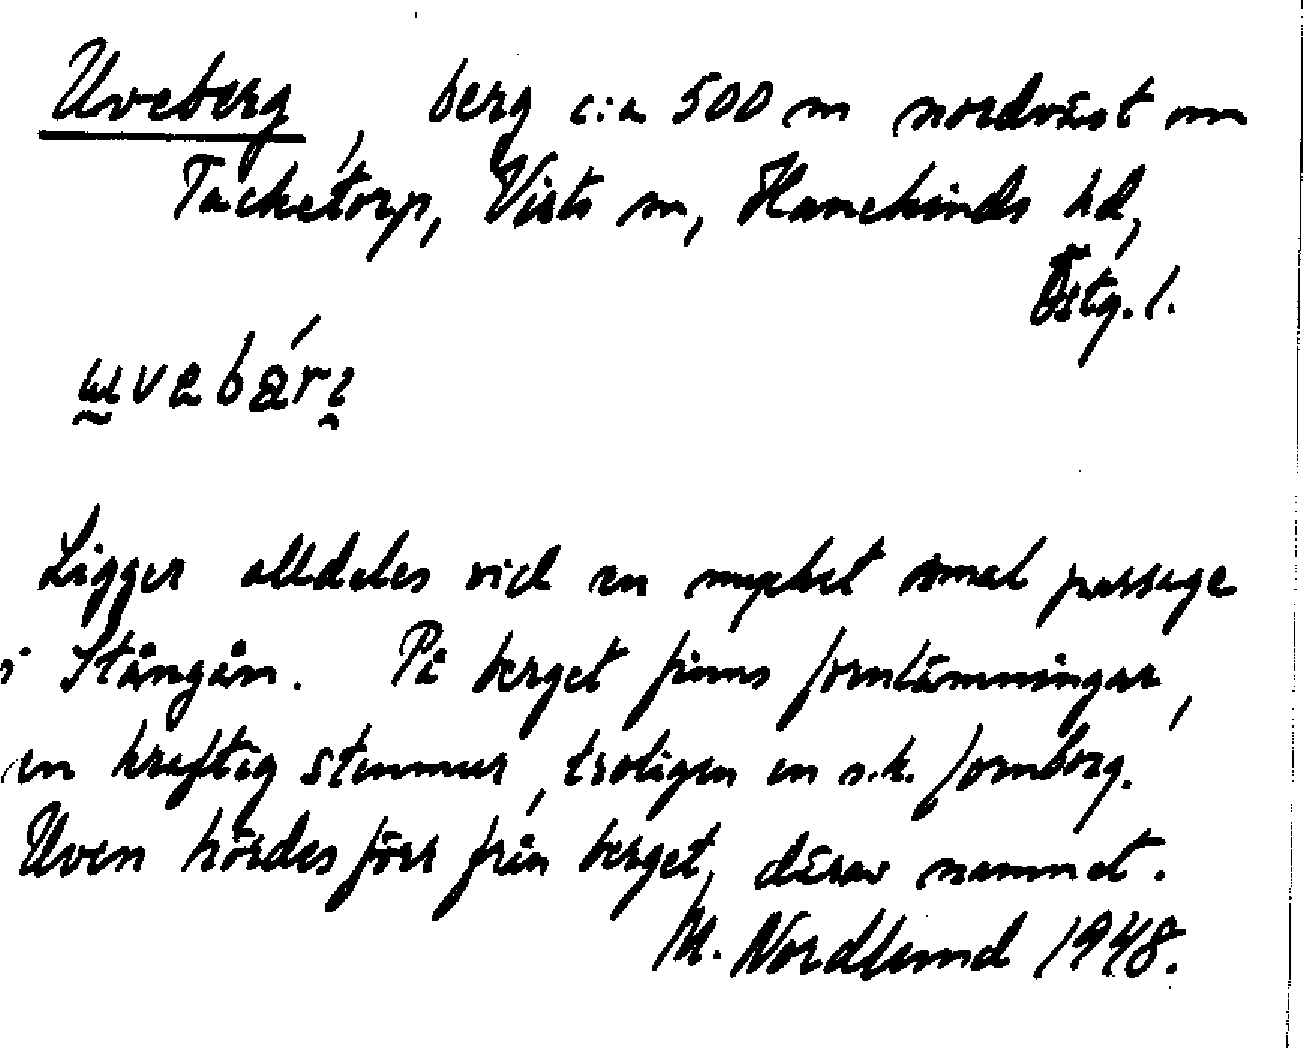 Uveberg, berg c:a 500 m nordväst om
Tacketorp, Vists sn, Hanekinds hd,
Östg. l.
Ligger alldeles vid en mycket smal passage
i Stångån. På berget finns fornlämningar,
en kraftig stenmur, troligen en s.k. fornborg.
Uven hördes förr från berget, därav namnet.
M. Nordlund 1948.